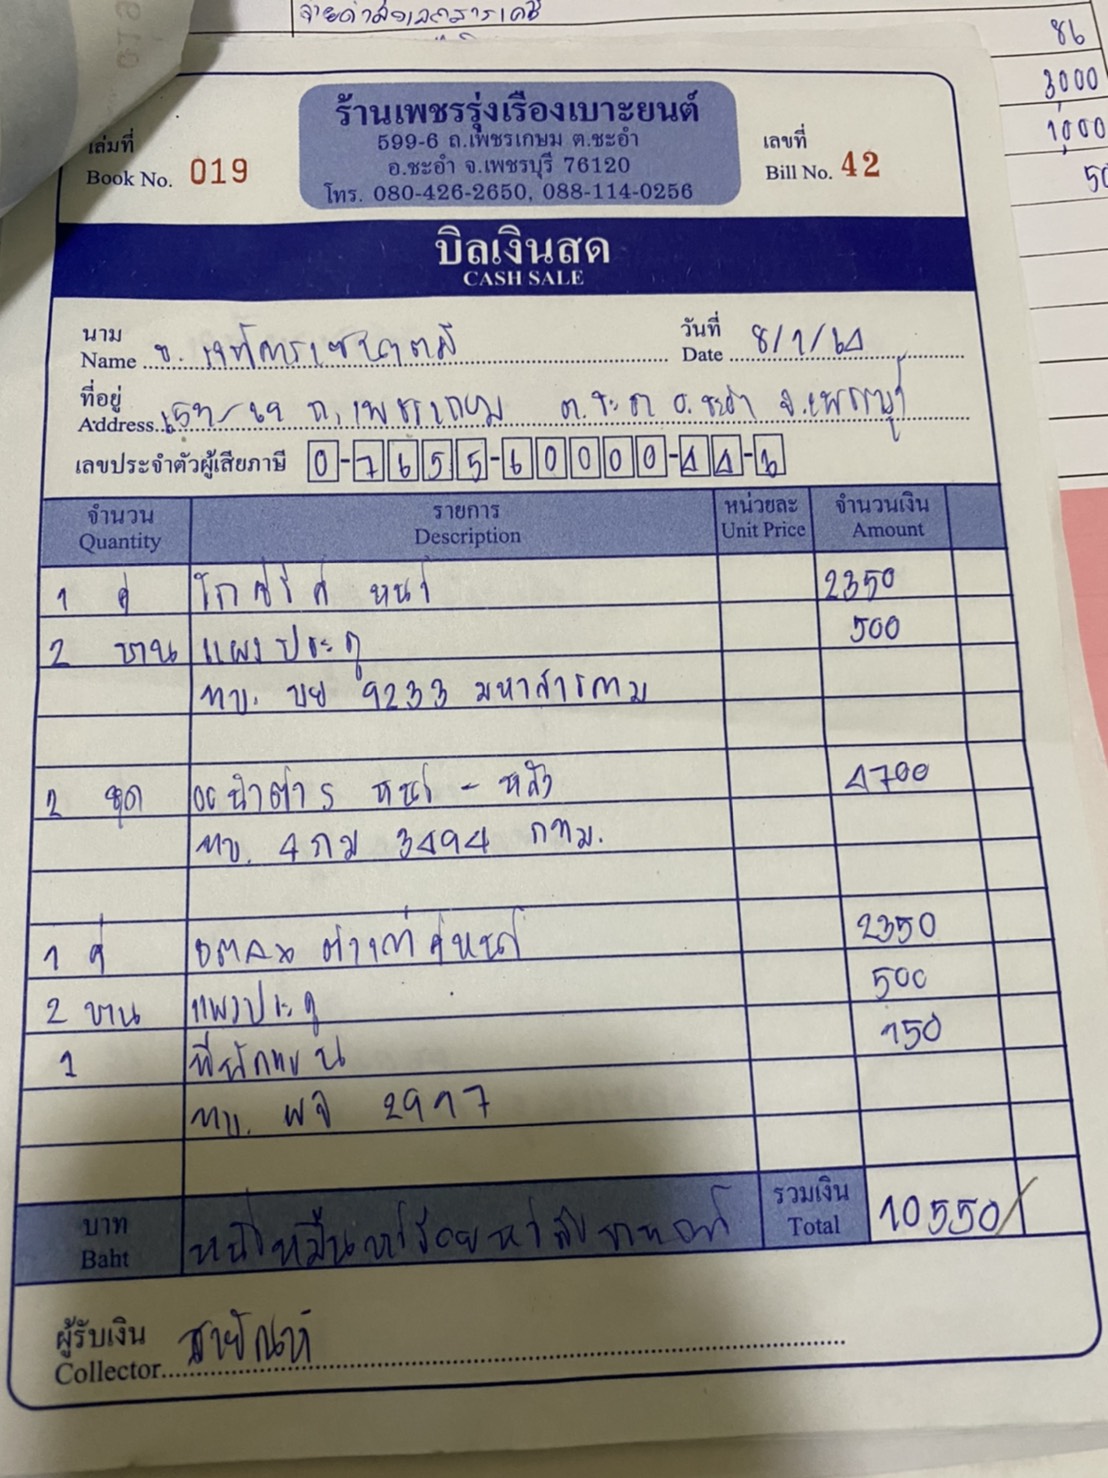 จ่ายค่าส่งเอกสารเคซี
86
3000
1,000
50
ร้านเพชรรุ่งเรืองเบาะยนต์
599-6 ถ.เพชรเกษม ต.ชะอำ
อ.ชะอำ จ.เพชรบุรี 76120
โทร. 080-426-2650, 088-114-0256
เล่มที่
Book No. 019
เลขที่
Bill No. 42
บิลเงินสด
CASH SALE
นาม
Name บ.
วันที่
Date 8/1/64
ที่อยู่
Address ถ.เพชรเกษม ต.ชะอำ อ.ชะอำ จ.เพชรบุรี
เลขประจำตัวผู้เสียภาษี 0-7655-60000-44-6
จำนวน รายการ หน่วยละ จำนวนเงิน
Quantity Description Unit Price Amount
1 คู่ หน้า 2350
2 บาน แผงประตู 500
ทบ. บย 9233 มหาสารคาม
2 ชุด หน้า - หลัง 4700
ทบ. 4กม 3494 กทม.
1 คู่ คู่หน้า 2350
2 บาน แผงประตู 500
1 ที่พักแขน 150
ทบ. ผจ 2917
บาท
Baht หนึ่งหมื่นห้าร้อยห้าสิบบาทถ้วน
รวมเงิน
Total 10550/
ผู้รับเงิน
Collector สายัณห์